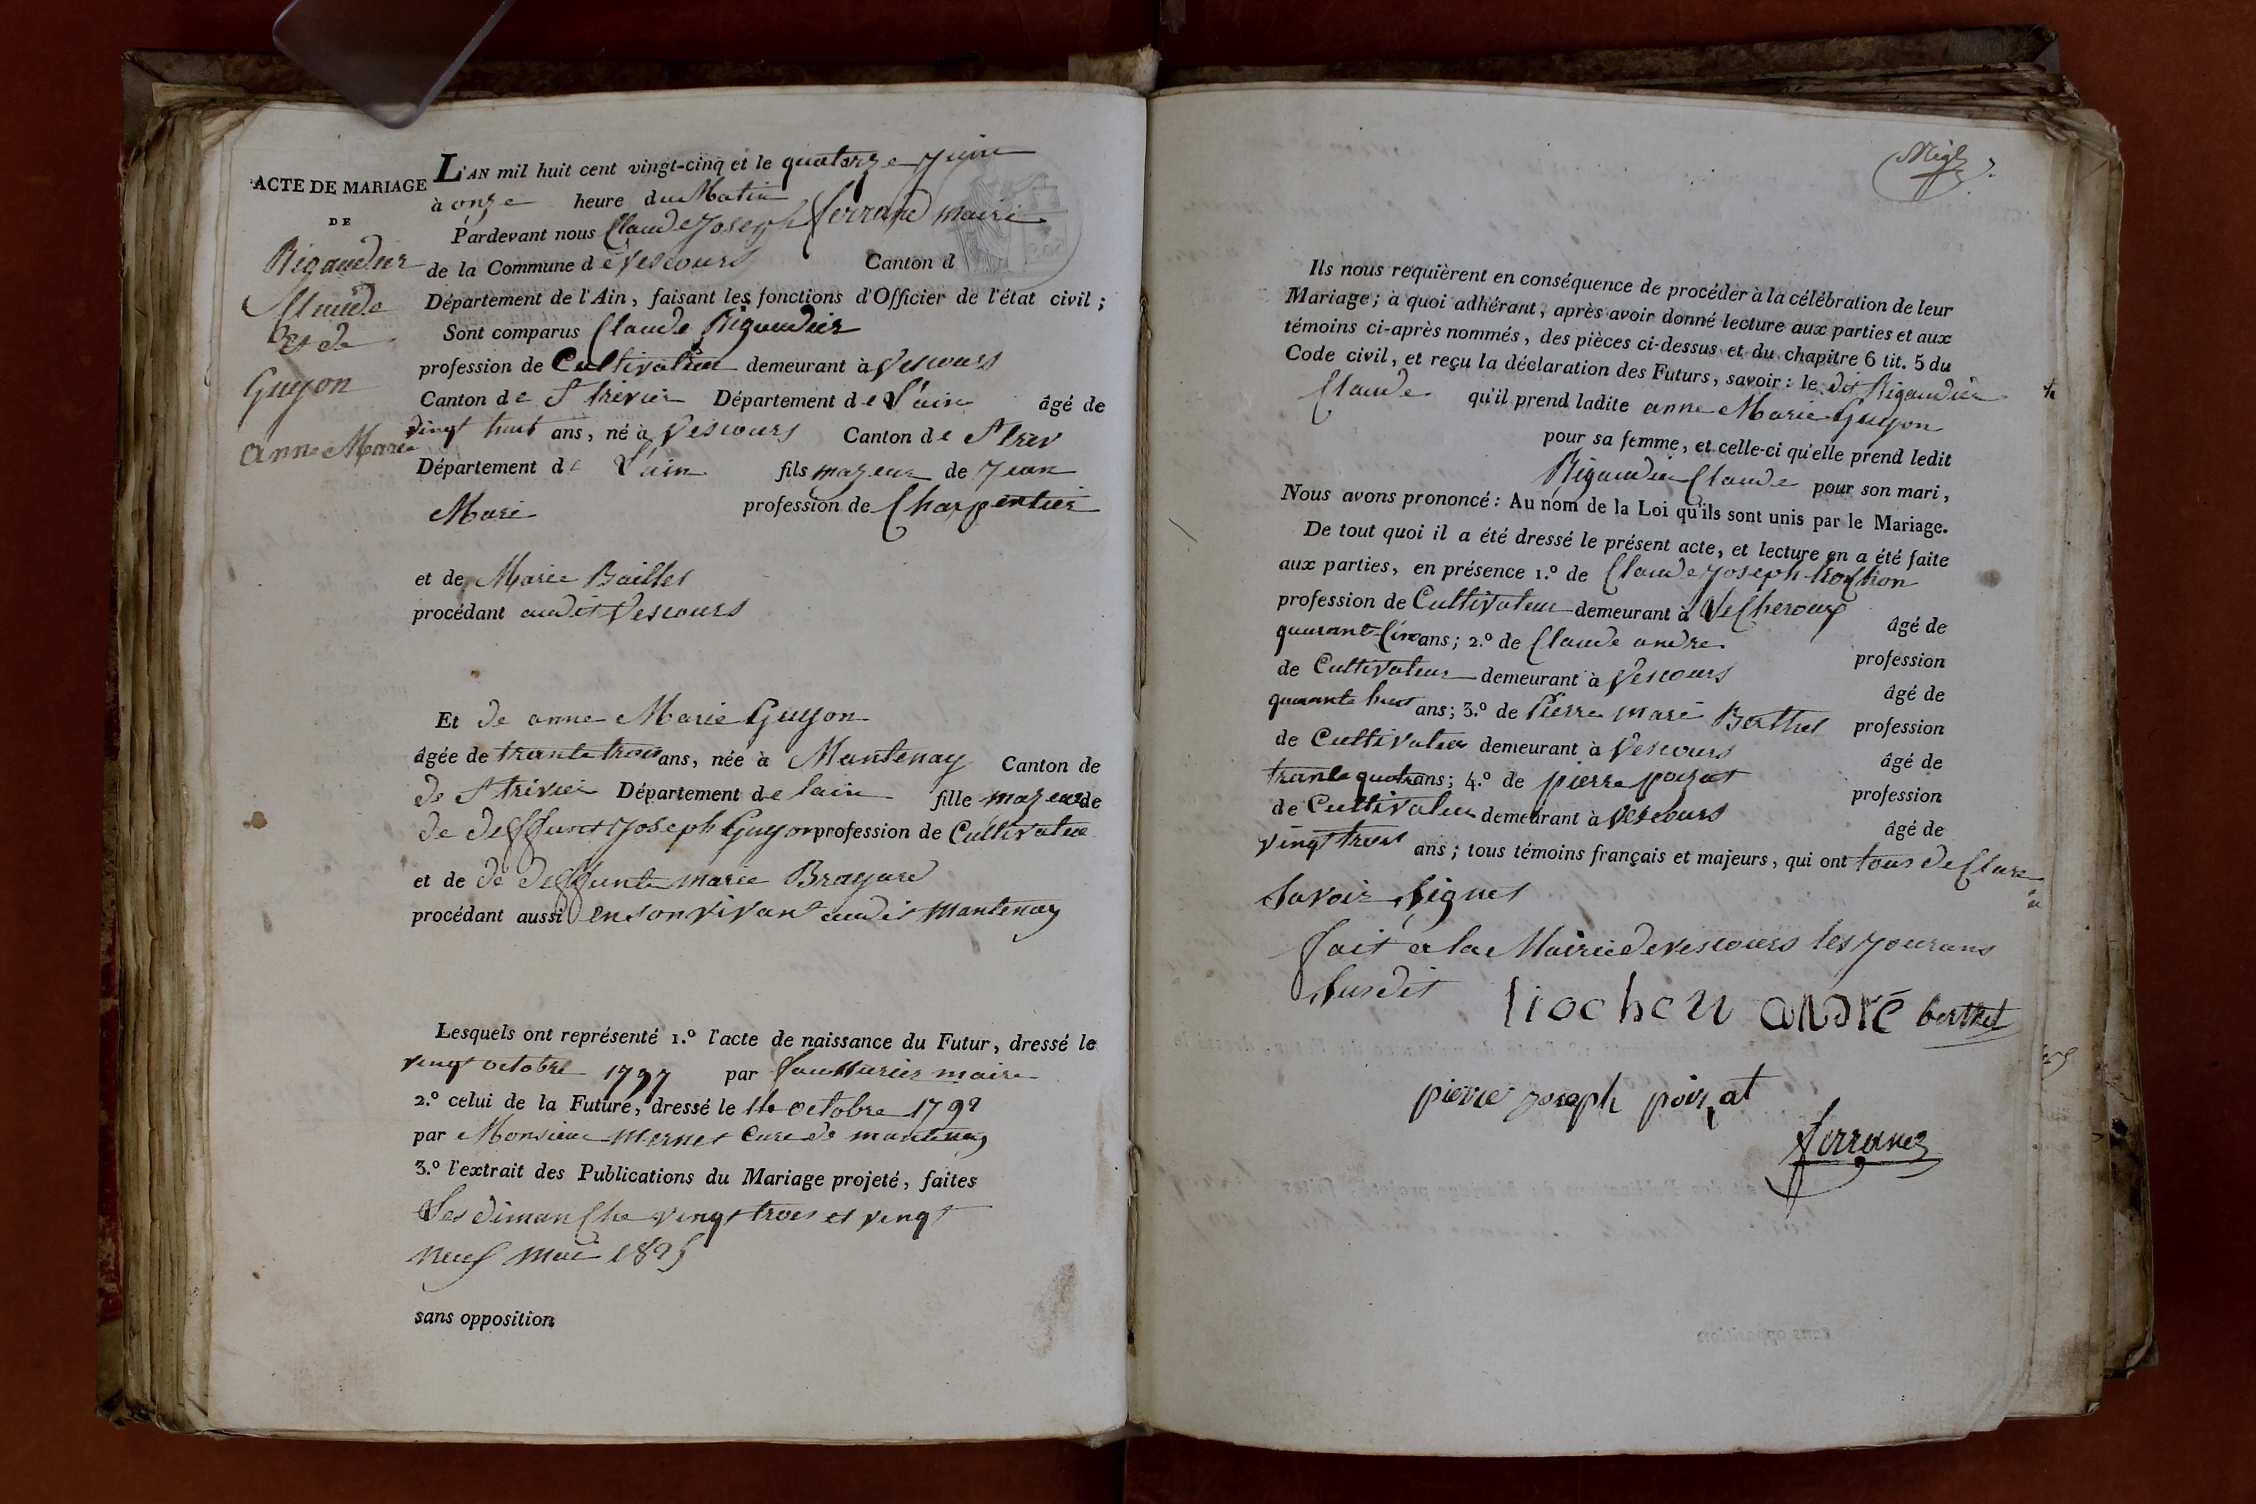 ACTE DE MARIAGE
DE
Rigaudier
Claude
Et de
Guyon
anne Marie
L'AN mil huit cent vingt-cinq et le quatorze Juin
à onze heure du Matin
Pardevant nous Claude Joseph ferrand maire
de la Commune de Vescours Canton d
Département de l'Ain, faisant les fonctions d'Officier de l'état civil;
Sont comparus Claude Rigaudier
profession de Cultivateur demeurant à Vescours
Canton de St trivier Département de L'ain âgé de
vingt huit ans, né à Vescours Canton de St triv
Département de L'ain fils majeur de Jean
Marie profession de Charpentier
et de Marie Baillet
procédant audit Vescours
Et de anne Marie Guyon
âgée de trante trois ans, née à Mantenay Canton de
de St trivier Département de lain fille majeur de
de deffunt Joseph Guyon profession de Cultivateur
et de de deffunte marie Brayard
procédant aussi en son vivant audit mantenay
Lesquels ont représenté 1.° l'acte de naissance du Futur, dressé le
vingt octobre 1797 par maire
2.° celui de la Future, dressé le octobre 1792
par Monsieur mernet Curé de mantenay
3.° l'extrait des Publications du Mariage projeté, faites
Les dimanche vingt trois et vingt
neuf mai 1825
sans opposition
Ils nous requièrent en conséquence de procéder à la célébration de leur
Mariage; à quoi adhérant, après avoir donné lecture aux parties et aux
témoins ci-après nommés, des pièces ci-dessus et du chapitre 6 tit. 5 du
Code civil, et reçu la déclaration des Futurs, savoir: le dit Rigaudier
Claude qu'il prend ladite anne Marie Guyon
pour sa femme, et celle-ci qu'elle prend ledit
Rigaudier Claude pour son mari,
Nous avons prononcé: Au nom de la Loi qu'ils sont unis par le Mariage.
De tout quoi il a été dressé le présent acte, et lecture en a été faite
aux parties, en présence 1.° de Claude Joseph
profession de Cultivateur demeurant à Vecheroux âgé de
quarant Cinc ans; 2.° de Claude andre profession
de Cultivateur demeurant à Vescours âgé de
quarante huit ans; 3.° de Pierre marie Berthet profession
de Cultivateur demeurant à Vescours âgé de
trante quatre ans; 4.° de pierre poizat profession
de Cultivateur demeurant à Vescours âgé de
vingt trois ans; tous témoins français et majeurs, qui ont tous declare
Savoir Signer
fait a la Mairie de vescours les Jour ans
Susdit
liochon andré berthet
pierre joseph poizat
ferrand